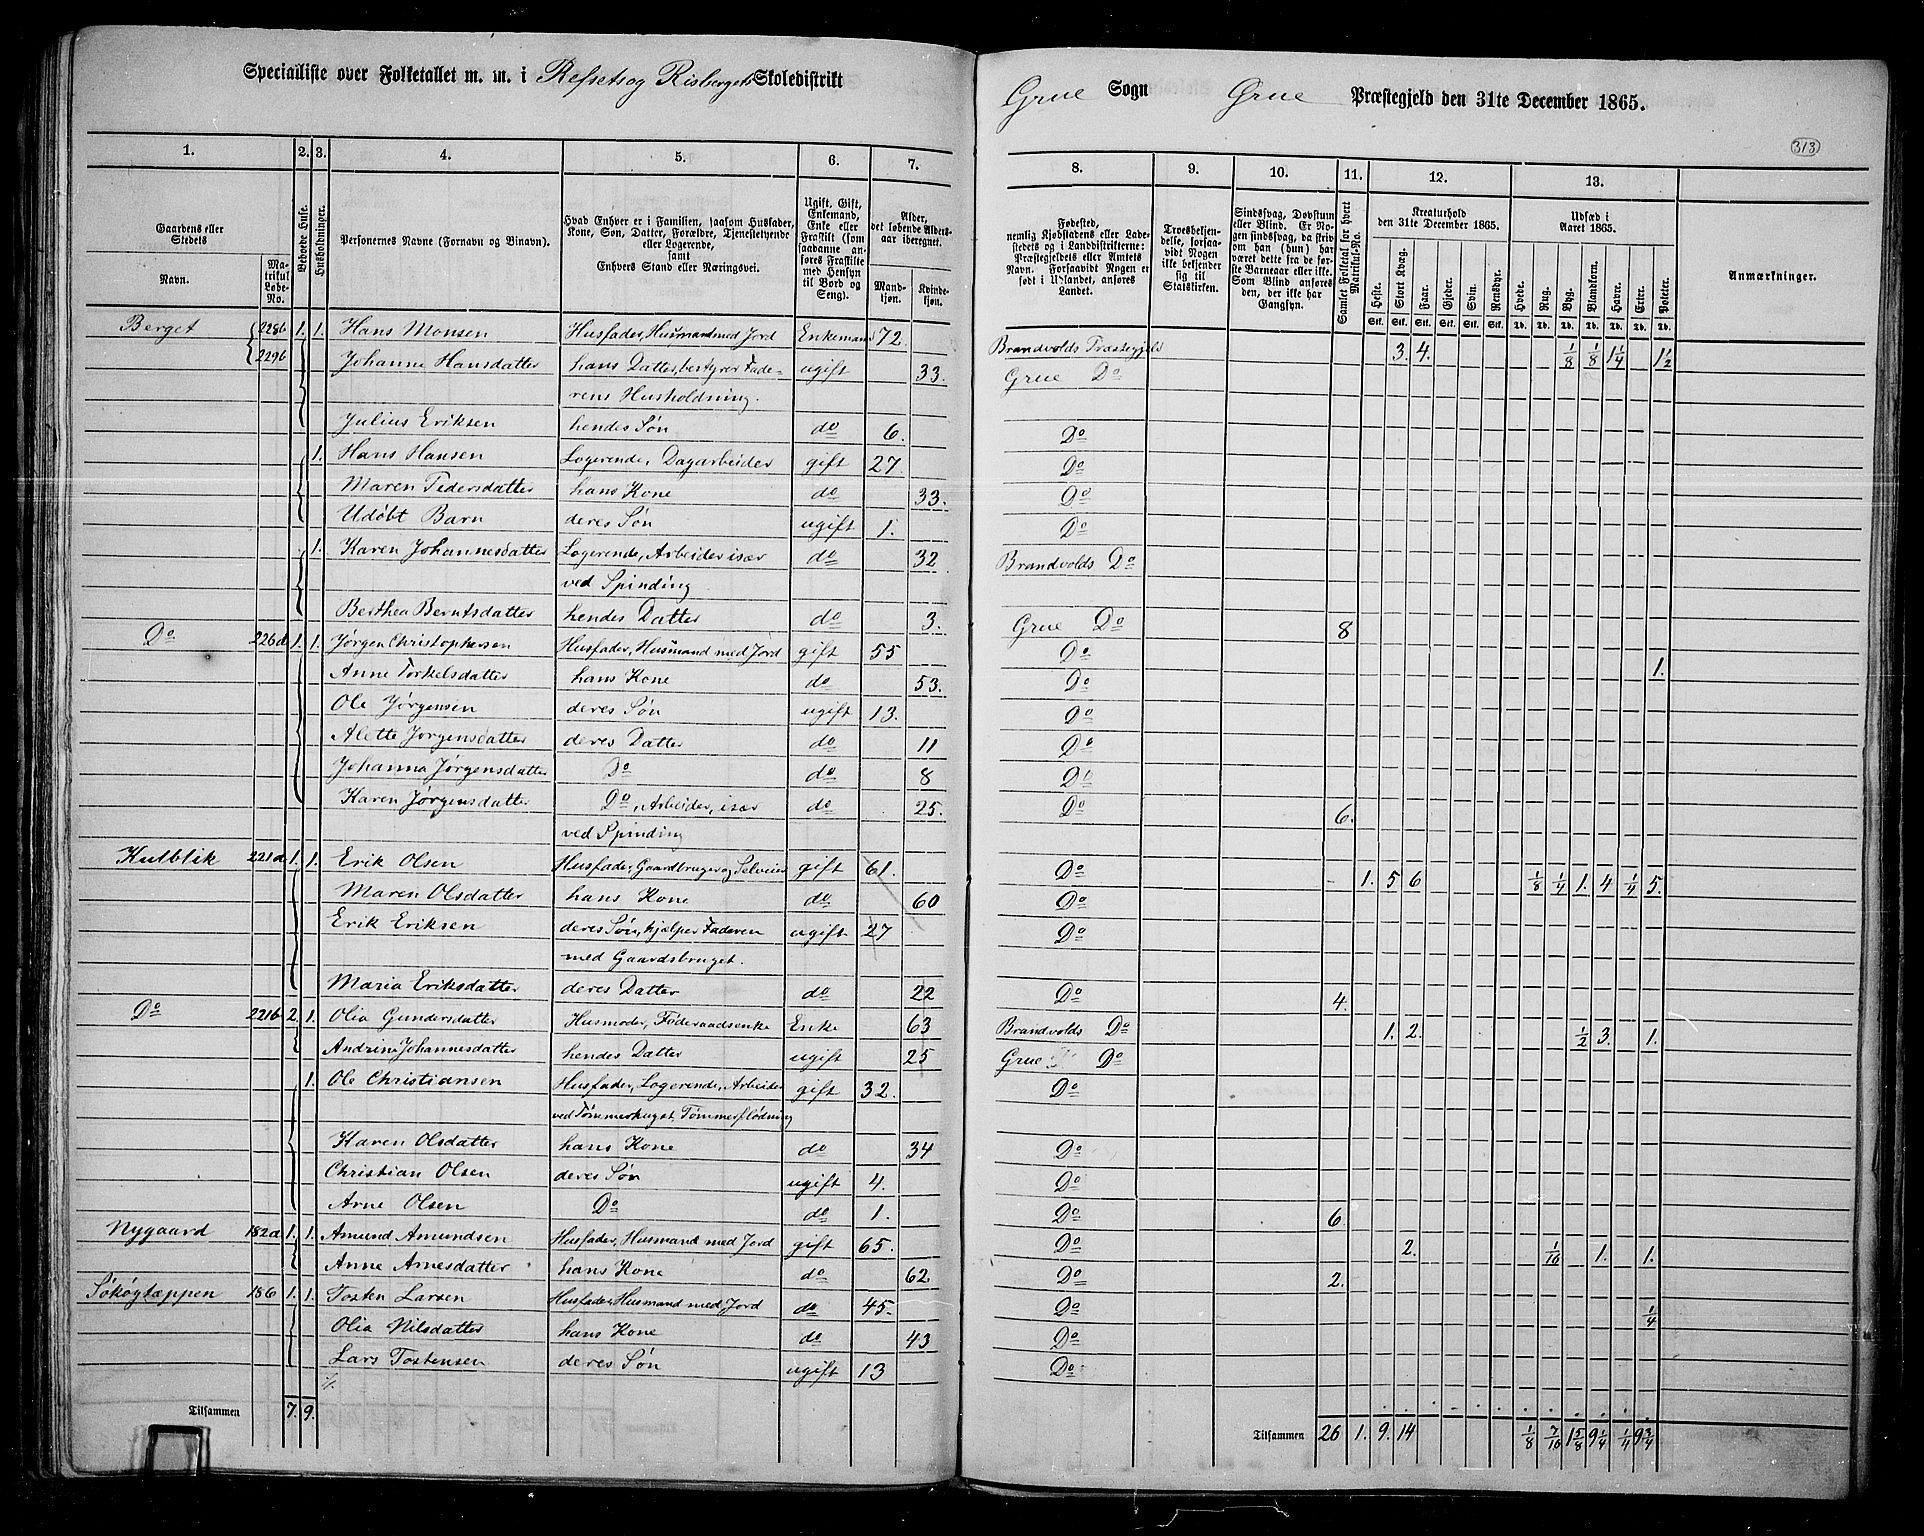 Specialliste over Folketallet m. m. i Refsets og Risbergets Skoledistrikt
Grue Sogn Grue Præstegjeld den 31te December 1865.
313
1. 2. 3. 4. 5. 6. 7. 8. 9. 10. 11. 12. 13.
Gaardens eller Stedets
Navn.
Matrikul Løbe-No.
Beboede Huse.
Husholdninger.
Personernes Navne (Fornavn og Binavn).
Hvad Enhver er i Familien, saasom Husfader, Kone, Søn, Datter, Forældre, Tjenestetyende eller Logerende, samt Enhvers Stand eller Næringsvei.
Ugift, Gift, Enkemand, Enke eller Fraskilt (som saadanne anføres Fraskilte med Hensyn til Bord og Seng).
Alder, det løbende Aldersaar iberegnet.
Mandkjøn. Kvindekjøn.
Fødested, nemlig Kjøbstadens eller Ladestedets og i Landdistrikterne: Præstegjeldets eller Amtets Navn. Forsaavidt Nogen er født i Udlandet, anføres Landet.
Troesbekjendelse, forsaavidt Nogen ikke bekjender sig til Statskirken.
Sindssvag, Døvstum eller Blind. Er Nogen sindssvag, da skrives om han (hun) har været dette fra de første Barneaar eller ikke. Som Blind anføres den, der ikke har Gangsyn.
Samlet Folketal for hvert Matrikul-No.
Kreaturhold den 31te December 1865.
Heste. Stort Kvæg. Faar. Gjeder. Svin. Rensdyr.
Udsæd i Aaret 1865.
Hvede. Rug. Byg. Blandkorn. Havre. Erter. Poteter.
Anmærkninger.
Berget 228b 1. 1. Hans Monsen Husfader, Husmand med Jord Enkemand 72. Brandvolds Præstegjeld 3. 4. 1/8 1/8 1 1/4 1 1/2
229b Johanne Hansdatter hans Datter, bestyrer Fade- ugift 33. Grue Do
rens Husholdning.
Julius Eriksen hendes Søn do 6. Do
1. Hans Hansen Logerende, Dagarbeider gift 27. Do
Maren Pedersdatter hans Kone do 33. Do
Udøbt Barn deres Søn ugift 1. Do
1. Karen Johannesdatter Logerende, Arbeider især do 32 Brandvolds Do
ved Spinding
Berthea Berntsdatter hendes Datter do 3. Grue Do 8
Do 226d 1. 1. Jørgen Christophersen Husfader, Husmand med Jord gift 55 Do 1.
Anne Torkelsdatter hans Kone do 53. Do
Ole Jørgensen deres Søn ugift 13. Do
Alette Jørgensdatter deres Datter do 11 Do
Johanna Jørgensdatter Do do 8 Do
Karen Jørgensdatter Do, Arbeider, især do 25. Do 6.
ved Spinding
Kulblik 221a 1. 1. Erik Olsen Husfader, Gaardbruger og Selveier gift 61. Do 1. 5 6 1/8 1/4 1. 4 1/4 5.
Maren Olsdatter hans Kone do 60 Do
Erik Eriksen deres Søn, hjælper Faderen ugift 27 Do
med Gaardsbruget.
Maria Eriksdatter deres Datter do 22 Do 4.
Do 221b 2. 1. Olia Gundersdatter Husmoder, Føderaadsenke Enke 63 Brandvolds Do 1. 2. 1/2 3. 1.
Andrine Johannesdatter hendes Datter ugift 25 Grue Do
1. Ole Christiansen Husfader, Logerende, Arbeider gift 32. Do
ved Tømmerhugst, Tømmerflødning
Karen Olsdatter hans Kone do 34 Do
Christian Olsen deres Søn ugift 4. Do
Arne Olsen Do do 1. Do 6
Nygaard 182a 1. 1. Amund Amundsen Husfader, Husmand med Jord gift 65. Do 2. 1/16 1. 1.
Anne Arnesdatter hans Kone do 62. Do 2.
Søkøgtæppen 186 1. 1. Tosten Larsen Husfader, Husmand med Jord do 45. Do 1/4
Olia Nilsdatter hans Kone do 43 Do
Lars Tostensen deres Søn ugift 13 Do
Tilsammen 7. 9. Tilsammen 26 1. 9. 14 1/8 7/16 1 5/8 9 1/4 1/4 9 3/4